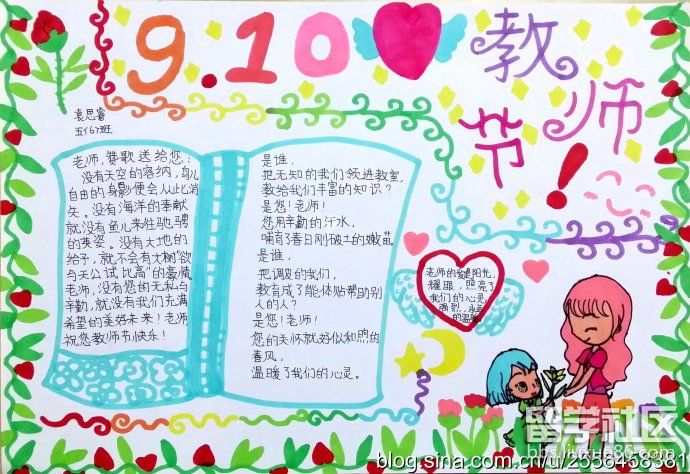 9.10
教师
节!
袁思睿
五(6)班
老师,赞歌送给您:
没有天空的容纳,鸟儿
自由的身影便会从此消
失。没有海洋的奉献
就没有鱼儿来往驰骋
的英姿。没有大地的
给予,就不会有大树“欲
与天公试比高”的豪情。
老师,没有您的无私与
辛勤,就没有我们充满
希望的美好未来!老师
祝您教师节快乐!
是谁,
把无知的我们领进教室,
教给我们丰富的知识?
是您!老师!
您用辛勤的汗水,
哺育了春日刚破土的嫩苗。
是谁,
把调皮的我们,
教育成了能体贴帮助别
人的人?
是您!老师!
您的关怀就好似和煦的
春风,
温暖了我们的心灵。
老师的爱是阳光,
耀眼,照亮了
我们的心灵。
强烈,永远
的温暖
留学社区
bbs.liuxue86.com
blog.sina.com.cn/u/2556458381